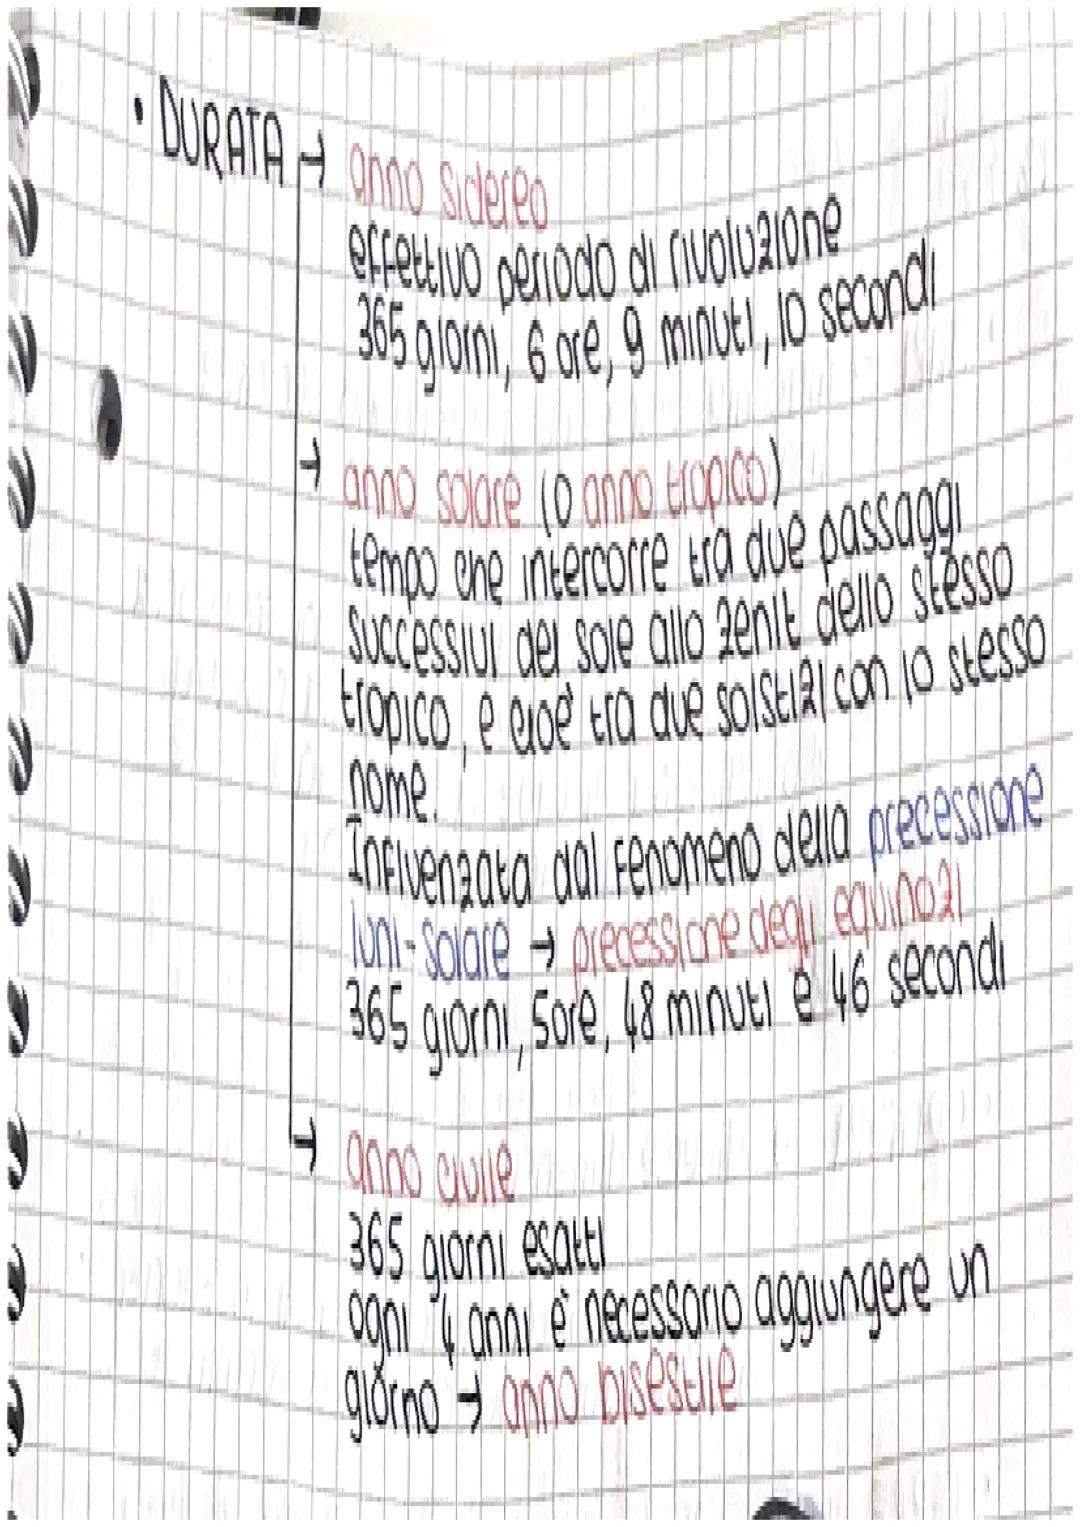 • DURATA → anno sidereo
effettivo periodo di rivoluzione
365 giorni, 6 ore, 9 minuti, 10 secondi
→ anno solare (o anno tropico)
tempo che intercorre tra due passaggi
successivi del sole allo zenit dello stesso
tropico, e cioè tra due solstizi con lo stesso
nome.
Influenzata dal fenomeno della precessione
luni-solare → precessione degli equinozi
365 giorni, 5 ore, 48 minuti e 46 secondi
→ anno civile
365 giorni esatti
ogni 4 anni è necessario aggiungere un
giorno → anno bisestile